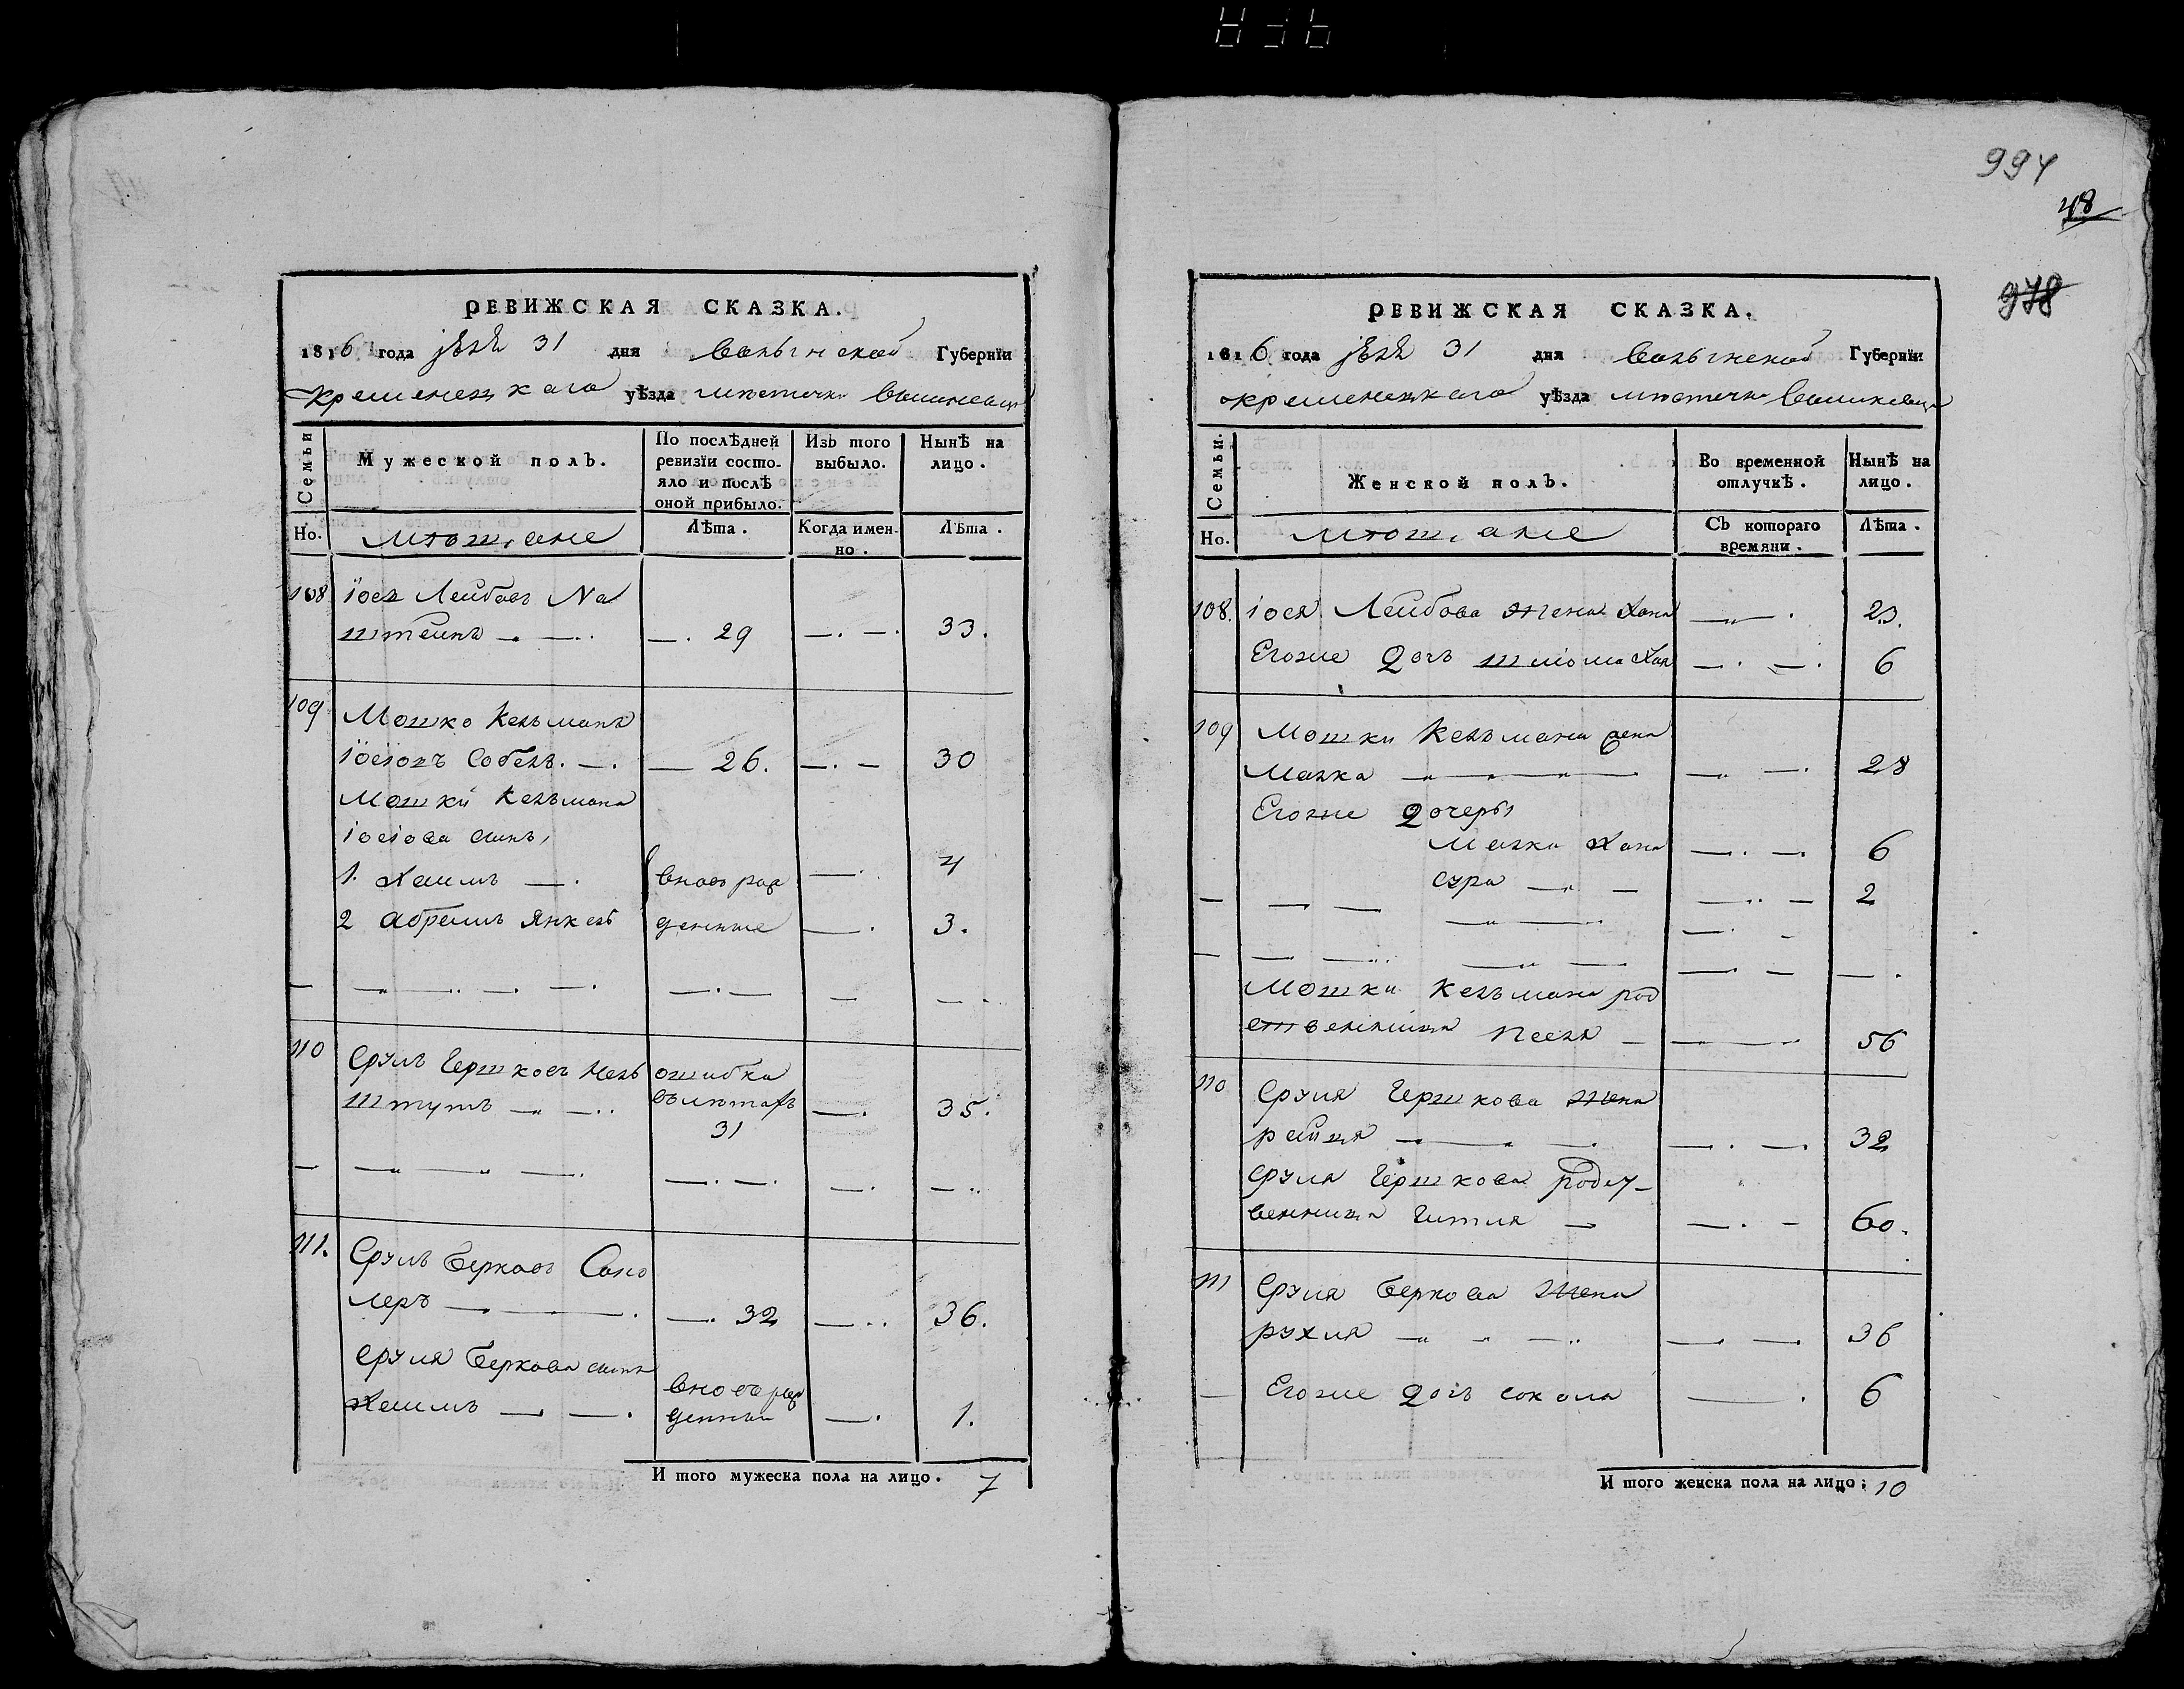 994
48
978
РЕВИЖСКАЯ СКАЗКА.
1816 года 31 дня Волынской Губернїи
Кременецкаго уѣзда мѣстечка Вышневца
Семьи
Мужеской полъ.
По послѣдней ревизїи состояло и послѣ оной прибыло.
Изъ того выбыло.
Нынѣ на лицо.
Но.
мѣщане
Лѣта.
Когда именно.
Лѣта.
108 іось Лейбовъ На
штейнъ 29 33.
109 Мошко Кельманъ
26. 30
Мошки Кельмана
іосіова сынъ,
1. Хаимъ вновь рож 4
2 Абрамъ Янкель денные 3.
110 Сруль Гершковъ ошибка
въ летахъ 35.
31
111. Сруль Берковъ
леръ 32 36.
Сруля Беркова сынъ
Хаимъ вновь рож
денный 1.
И того мужеска пола на лицо. 7
РЕВИЖСКАЯ СКАЗКА.
1816 года 31 дня Волынской Губернїи
Кременецкаго уѣзда мѣстечка Вышневца
Семьи.
Женской полъ.
Во временной отлучкѣ.
Нынѣ на лицо.
Но.
мѣщане
Съ котораго времяни.
Лѣта.
108. іося Лейбова жена Хана 23.
Егоже дочь 6
109 Мошки Кельмана жена
Малка 28
Егоже дочеры
Хана 6
сура 2
Мошки Кельмана род
ственница Песля 56
110 Сруля Гершкова жена
рейзя 32
Сруля Гершкова родст
венница Гитля 60.
111 Сруля Беркова жена
рухля 36
Егоже дочь 6
И того женска пола на лицо: 10